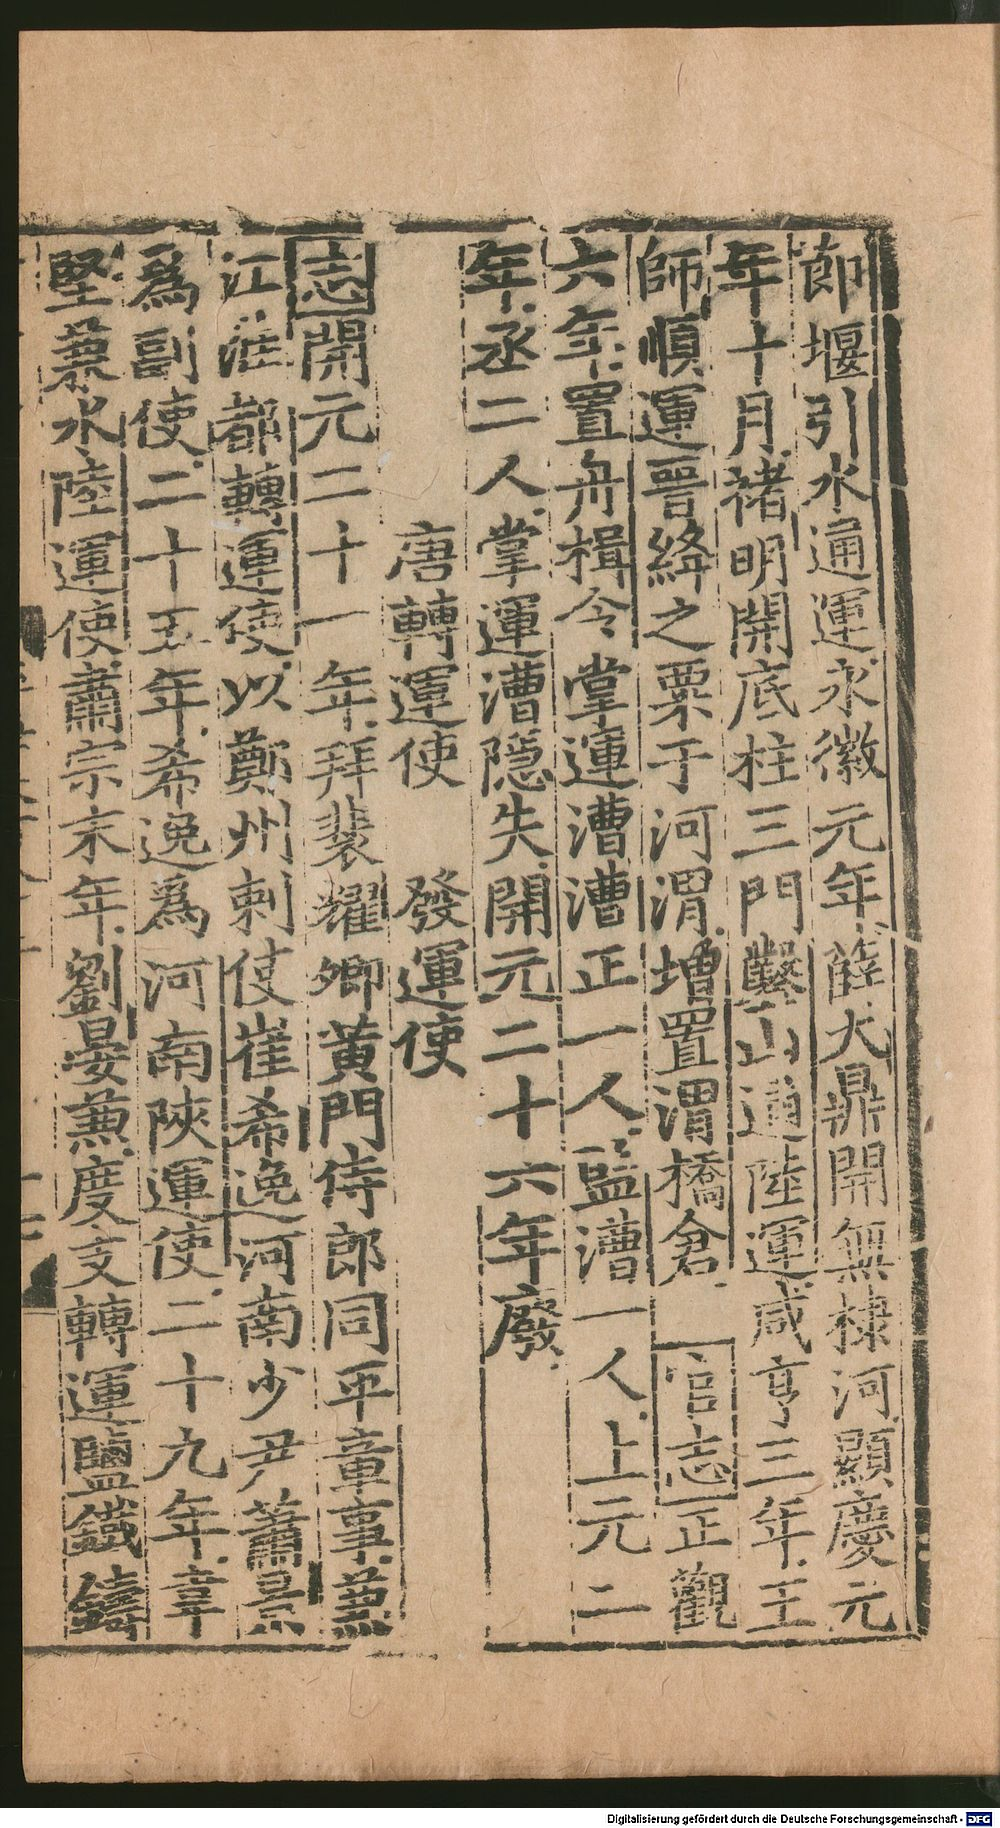 節堰引水通運永徽元年薛大鼎開無棣河顯慶元
年十月褚明開底柱三門鑿山通陸運咸亨三年王
師順運晉絳之粟于河渭增置渭橋倉 官志正觀
六年置舟楫令掌運漕漕正一人監漕一人上元二
年丞二人掌運漕隱失開元二十六年廢
唐轉運使 發運使
志開元二十一年拜裴耀卿黃門侍郎同平章事兼
江淮都轉運使以鄭州刺使崔希逸河南少尹蕭景
爲副使二十五年希逸爲河南陝運使二十九年韋
堅兼水陸運使肅宗末年劉晏兼度支轉運鹽鐵鑄
Digitalisierung gefördert durch die Deutsche Forschungsgemeinschaft - DFG